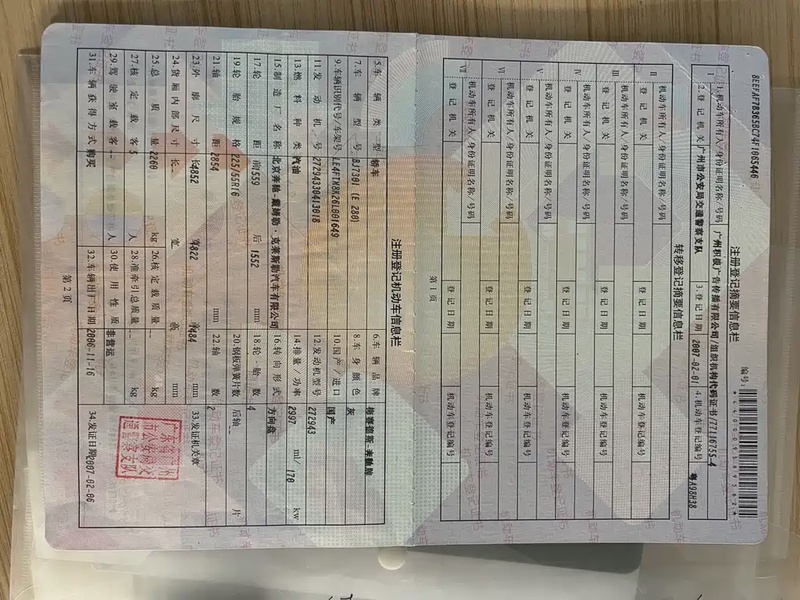 注册登记摘要信息栏
编号:
I
1.机动车所有人/身份证明名称/号码 广州积极广告传播有限公司/组织机构代码证书/77116755-4
2.登记机关 广州市公安局交通警察支队 3.登记日期 2007-02-01 4.机动车登记编号 粤A98H38
转移登记摘要信息栏
II
机动车所有人/身份证明名称/号码
登记机关 登记日期 机动车登记编号
III
机动车所有人/身份证明名称/号码
登记机关 登记日期 机动车登记编号
IV
机动车所有人/身份证明名称/号码
登记机关 登记日期 机动车登记编号
V
机动车所有人/身份证明名称/号码
登记机关 登记日期 机动车登记编号
VI
机动车所有人/身份证明名称/号码
登记机关 登记日期 机动车登记编号
VII
机动车所有人/身份证明名称/号码
登记机关 登记日期 机动车登记编号
第1页
注册登记机动车信息栏
5.车辆类型 轿车 6.车辆品牌 梅赛德斯-奔驰牌
7.车辆型号 BJ7301 (E 280) 8.车身颜色 灰
9.车辆识别代号/车架号 LE4FTWBK26L001649 10.国产/进口 国产
11.发动机号 27294330413018 12.发动机型号 272943
13.燃料种类 汽油 14.排量/功率 2997 ml/ 170 kw
15.制造厂名称 北京奔驰-戴姆勒·克莱斯勒汽车有限公司 16.转向形式 方向盘
17.轮距 前1559 后 1552 mm 18.轮胎数 4
19.轮胎规格 225/55R16 20.钢板弹簧片数 后轴 片
21.轴距 2854 mm 22.轴数 2
23.外廓尺寸 长4852 宽1822 高1484 mm
24.货厢内部尺寸 长 宽 高 mm
25.总质量 2260 kg 26.核定载质量 kg
27.核定载客 5 人 28.准牵引总质量 kg
29.驾驶室载客 人 30.使用性质 非营运
31.车辆获得方式 购买 32.车辆出厂日期 2006-11-16
33.发证机关章
34.发证日期 2007-02-06
第2页